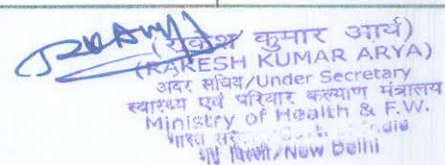 (राकेश कुमार आर्य)
(RAKESH KUMAR ARYA)
अवर सचिव/Under Secretary
स्वास्थ्य एवं परिवार कल्याण मंत्रालय
Ministry of Health & F.W.
भारत
दिल्ली/New Delhi